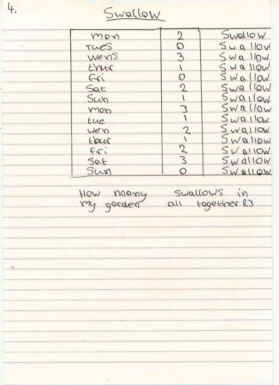 4.
Swallow
mon 2 Swallow
tues 0 Swallow
wens 3 Swallow
thur 1 Swallow
fri 0 Swallow
Sat 2 Swallow
Sun 1 Swallow
mon 3 Swallow
tue 1 Swallow
wen 2 Swallow
thur 1 Swallow
fri 2 Swallow
Sat 3 Swallow
Sun 0 Swallow
How many swallows in
my garden all together